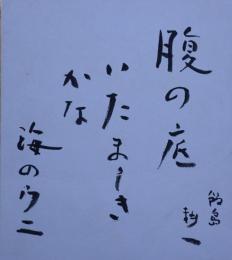 腹の底
いたましき
かな
海のウニ
飯島
耕一